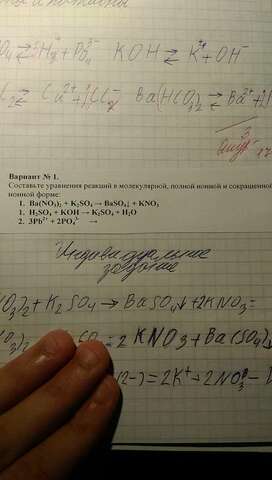 KOH ⇄ K⁺ + OH⁻
Вариант № 1.
Составьте уравнения реакций в молекулярной, полной ионной и сокращенной
ионной форме:
1. Ba(NO₃)₂ + K₂SO₄ → BaSO₄↓ + KNO₃
1. H₂SO₄ + KOH → K₂SO₄ + H₂O
2. 3Pb²⁺ + 2PO₄³⁻ →
Индивидуальное
задание
O₃)₂ + K₂SO₄ → BaSO₄↓ + 2KNO₃ =
= 2KNO₃ + Ba(SO₄)↓
2-) = 2K⁺ + 2NO₃⁻